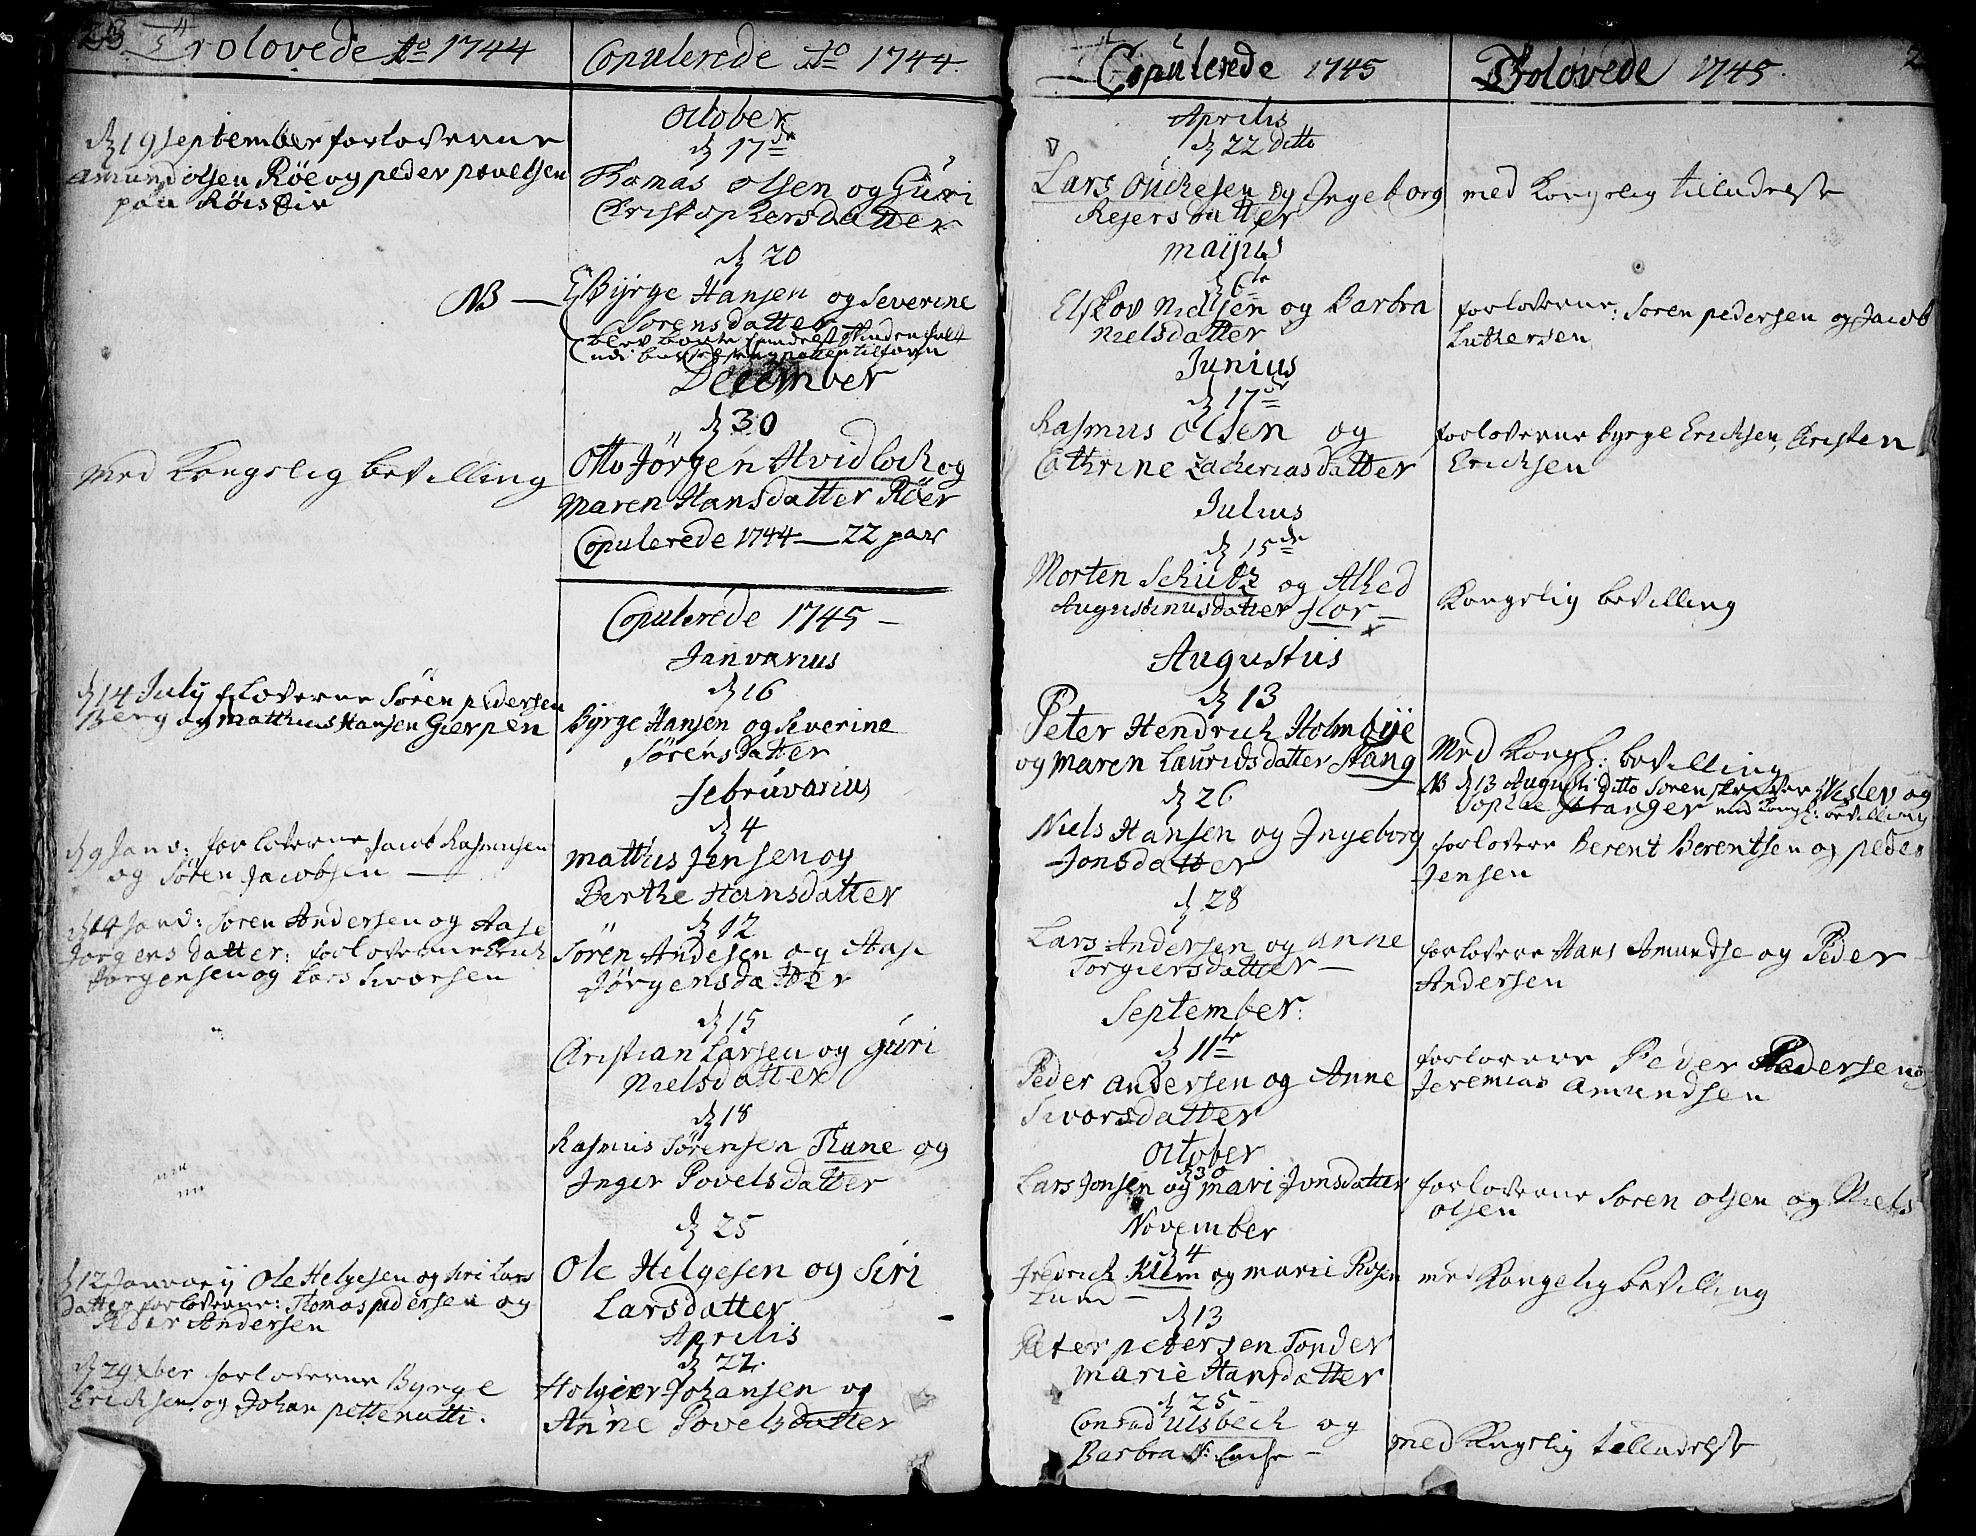 Trolovede Ao 1744
d 19 september forloverne
Amund olsen Röe og peder povelsen
paa
NB —
Med Kongelig bevilling
d 14 July floverne Sören pedersen
Berg og Matthias Hansen Gierpen
d 9 Janv: forloverne Jacob Rasmusen
og Sören Jacobsen —
d 14 Janv: Soren Andersen og Aase
Jorgensdatter: forloverne
Jorgensen og Lars Sivorsen
d 12 Janvarij Ole Helgesen og Siri Lars
datter forloverne: Thomas pedersen og
Peder Andersen
d 29 xber forloverne Byrge
Ericksen og Johan pettenutti.
Copulerede Ao 1744.
October
d 17de
Thomas olsen og Guri
Christophersdatter
d 20
Byrge Hansen og Severine
Sorensdatter
December
d 30
Otto Jörgen Hvidlock og
Maren Hansdatter Röer
Copulerede 1744 — 22 par
Copulerede 1745 —
Janvarius
d 16
Byrge Hansen og Severine
Sörensdatter
Februvarius
d 4
Matthis Jensen og
Berthe Hansdatter
d 12
Soren Andesen og Aase
Jörgensdatter
d 15
Christian Larsen og Guri
Nielsdatter
d 18
Rasmus Sörensen Thane og
Inger Povelsdatter
d 25
Ole Helgesen og Siri
Larsdatter
Aprilis
d 22.
Holgier Johansen og
Anne Povelsdatter
Copulerede 1745
Aprilis
d 22 ditto
Lars Ouchesen og Ingeborg
Rejersdatter
Maijus
d 6te
Eskov Nielsen og Barbra
Nielsdatter
Junius
d 17de
Rasmus Olsen og
Cathrine Zachariasdatter
Julius
d 15de
Morten Schutz og Alhed
Augustinusdatter Flor —
Augustus
d 13
Peter Hendrich Holmbye
og Maren Lauridsdatter Stang
d 26
Niels Hansen og Ingeborg
Jonsdatter
d 28
Lars Andersen og Anne
Torgiersdatter —
September:
d 11te
Peder Andersen og Anne
Sivorsdatter
October
d 30
Lars Jonsen og Mari Jonsdatter
November
d 4
Fredrich Klem og Marie Rosen
Lund —
d 13
Peter petersen Tonder
Marie Hansdatter
d 25
Conrad Ulsbech og
Barbra
Trolovede 1745.
med Kongelig tilladelse
forloverne: Soren pedersen og Jacob
Luthersen
forloverne Byrge Ericksen, Christen
Ericksen
Kongelig bevilling
Med Kongl: bevilling
NB d 13 Augusti ditto Soren og
Sophie Stranger med Kongl: bevilling
forlovere Berent Berentsen og peder
Jensen
forlovere Hans Amundse og Peder
Andersen
forlovere Peder Pedersen og
Jeremias Amundsen
forloverne Soren olsen og Niels
olsen
med Kongelig bevilling
med Kongelig tilladelse